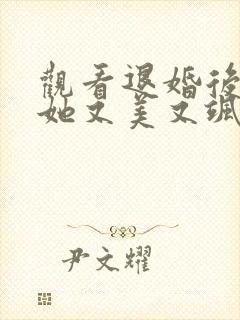 觀看退婚後
她又美又颯
尹文耀